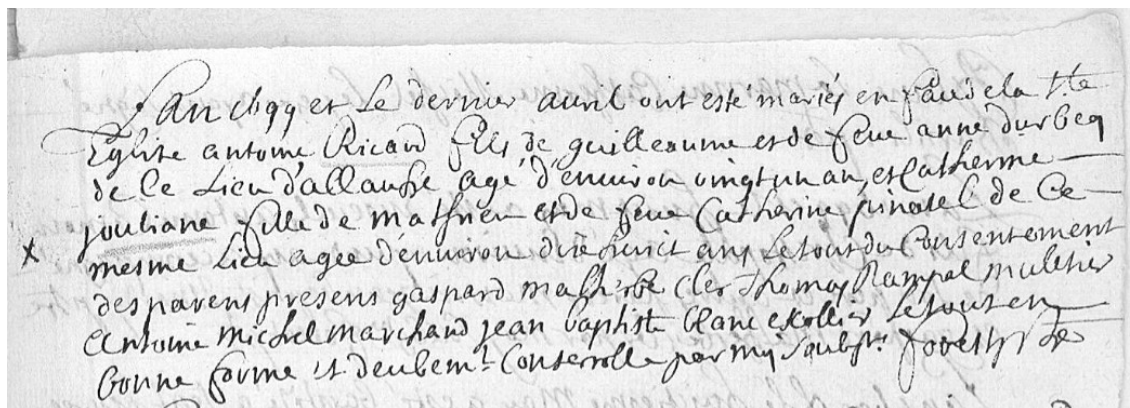 L'an 1699 et Le dernier avril ont esté mariés en face de la Ste
Eglise antoine Ricard fils de guilleaume et de feue anne durbeq
de Ce Lieu d'allauste agé d'environ vingt un an, et Catherine
jouliane fille de mathieu et de feue Catherine pinatel de Ce
mesme Lieu agee d'environ dixe huict ans Le tout du Consentement
des parens presens gaspard malherbe Cler Thomas Rampal muletier
antoine michel marchand jean baptiste blanc escollier Le tout en
bonne forme et deubemt Conterrolle par moy soubsne